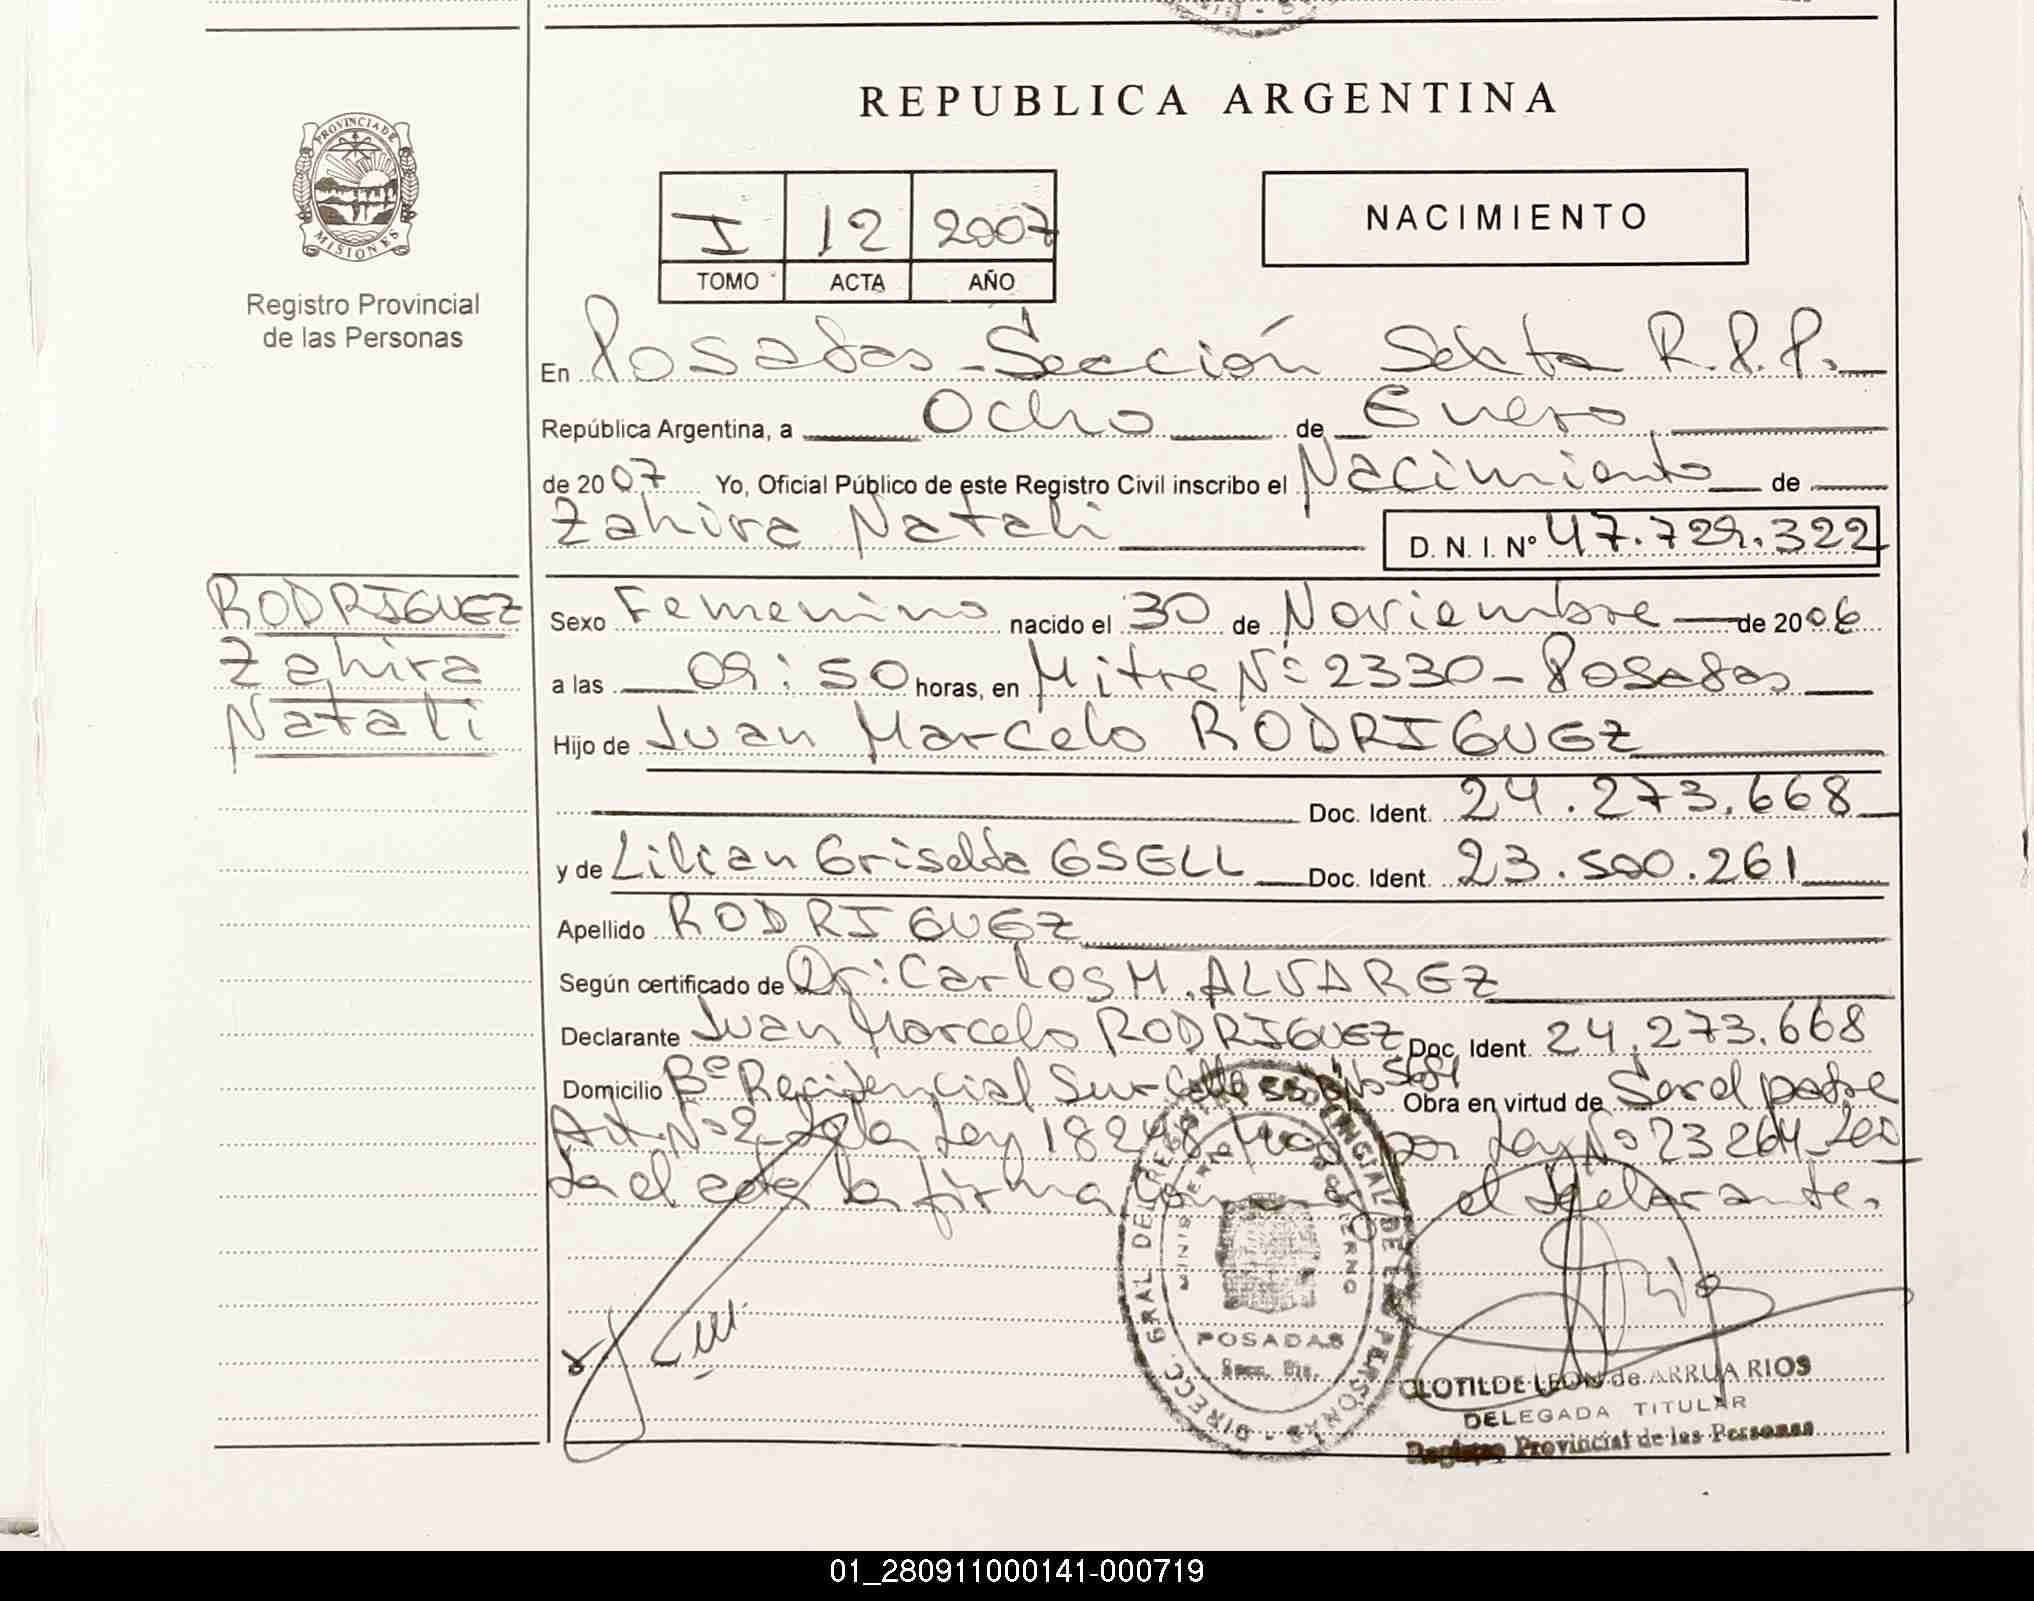 REPUBLICA ARGENTINA
PROVINCIA DE
MISIONES
Registro Provincial
de las Personas
I 12 2007
TOMO ACTA AÑO
NACIMIENTO
En Posadas - Sección Sexta R.P.P.
República Argentina, a Ocho de Enero
de 2007 Yo, Oficial Público de este Registro Civil inscribo el Nacimiento de
Zahira Natali D. N. I. Nº 47.729.322
RODRIGUEZ
Zahira
Natali
Sexo Femenino nacido el 30 de Noviembre de 2006
a las 09:50 horas, en Mitre Nº 2330 - Posadas
Hijo de Juan Marcelo RODRIGUEZ
Doc. Ident. 24.273.668
y de Lilian Griselda GSELL Doc. Ident. 23.500.261
Apellido RODRIGUEZ
Según certificado de Dr: Carlos M. ALVAREZ
Declarante Juan Marcelo RODRIGUEZ Doc. Ident. 24.273.668
Domicilio Bº Recidencial Sur Calle Obra en virtud de Ser el padre
Art. Nº 2 de la Ley 18248 Mod por Ley Nº 23264 Leí
da el acta la firma el declarante.
DIRECC. GRAL DEL REGISTRO PROVINCIAL DE LAS PERSONAS
POSADAS
CLOTILDE LEON de ARRUA RIOS
DELEGADA TITULAR
Registro Provincial de las Personas
01_280911000141-000719